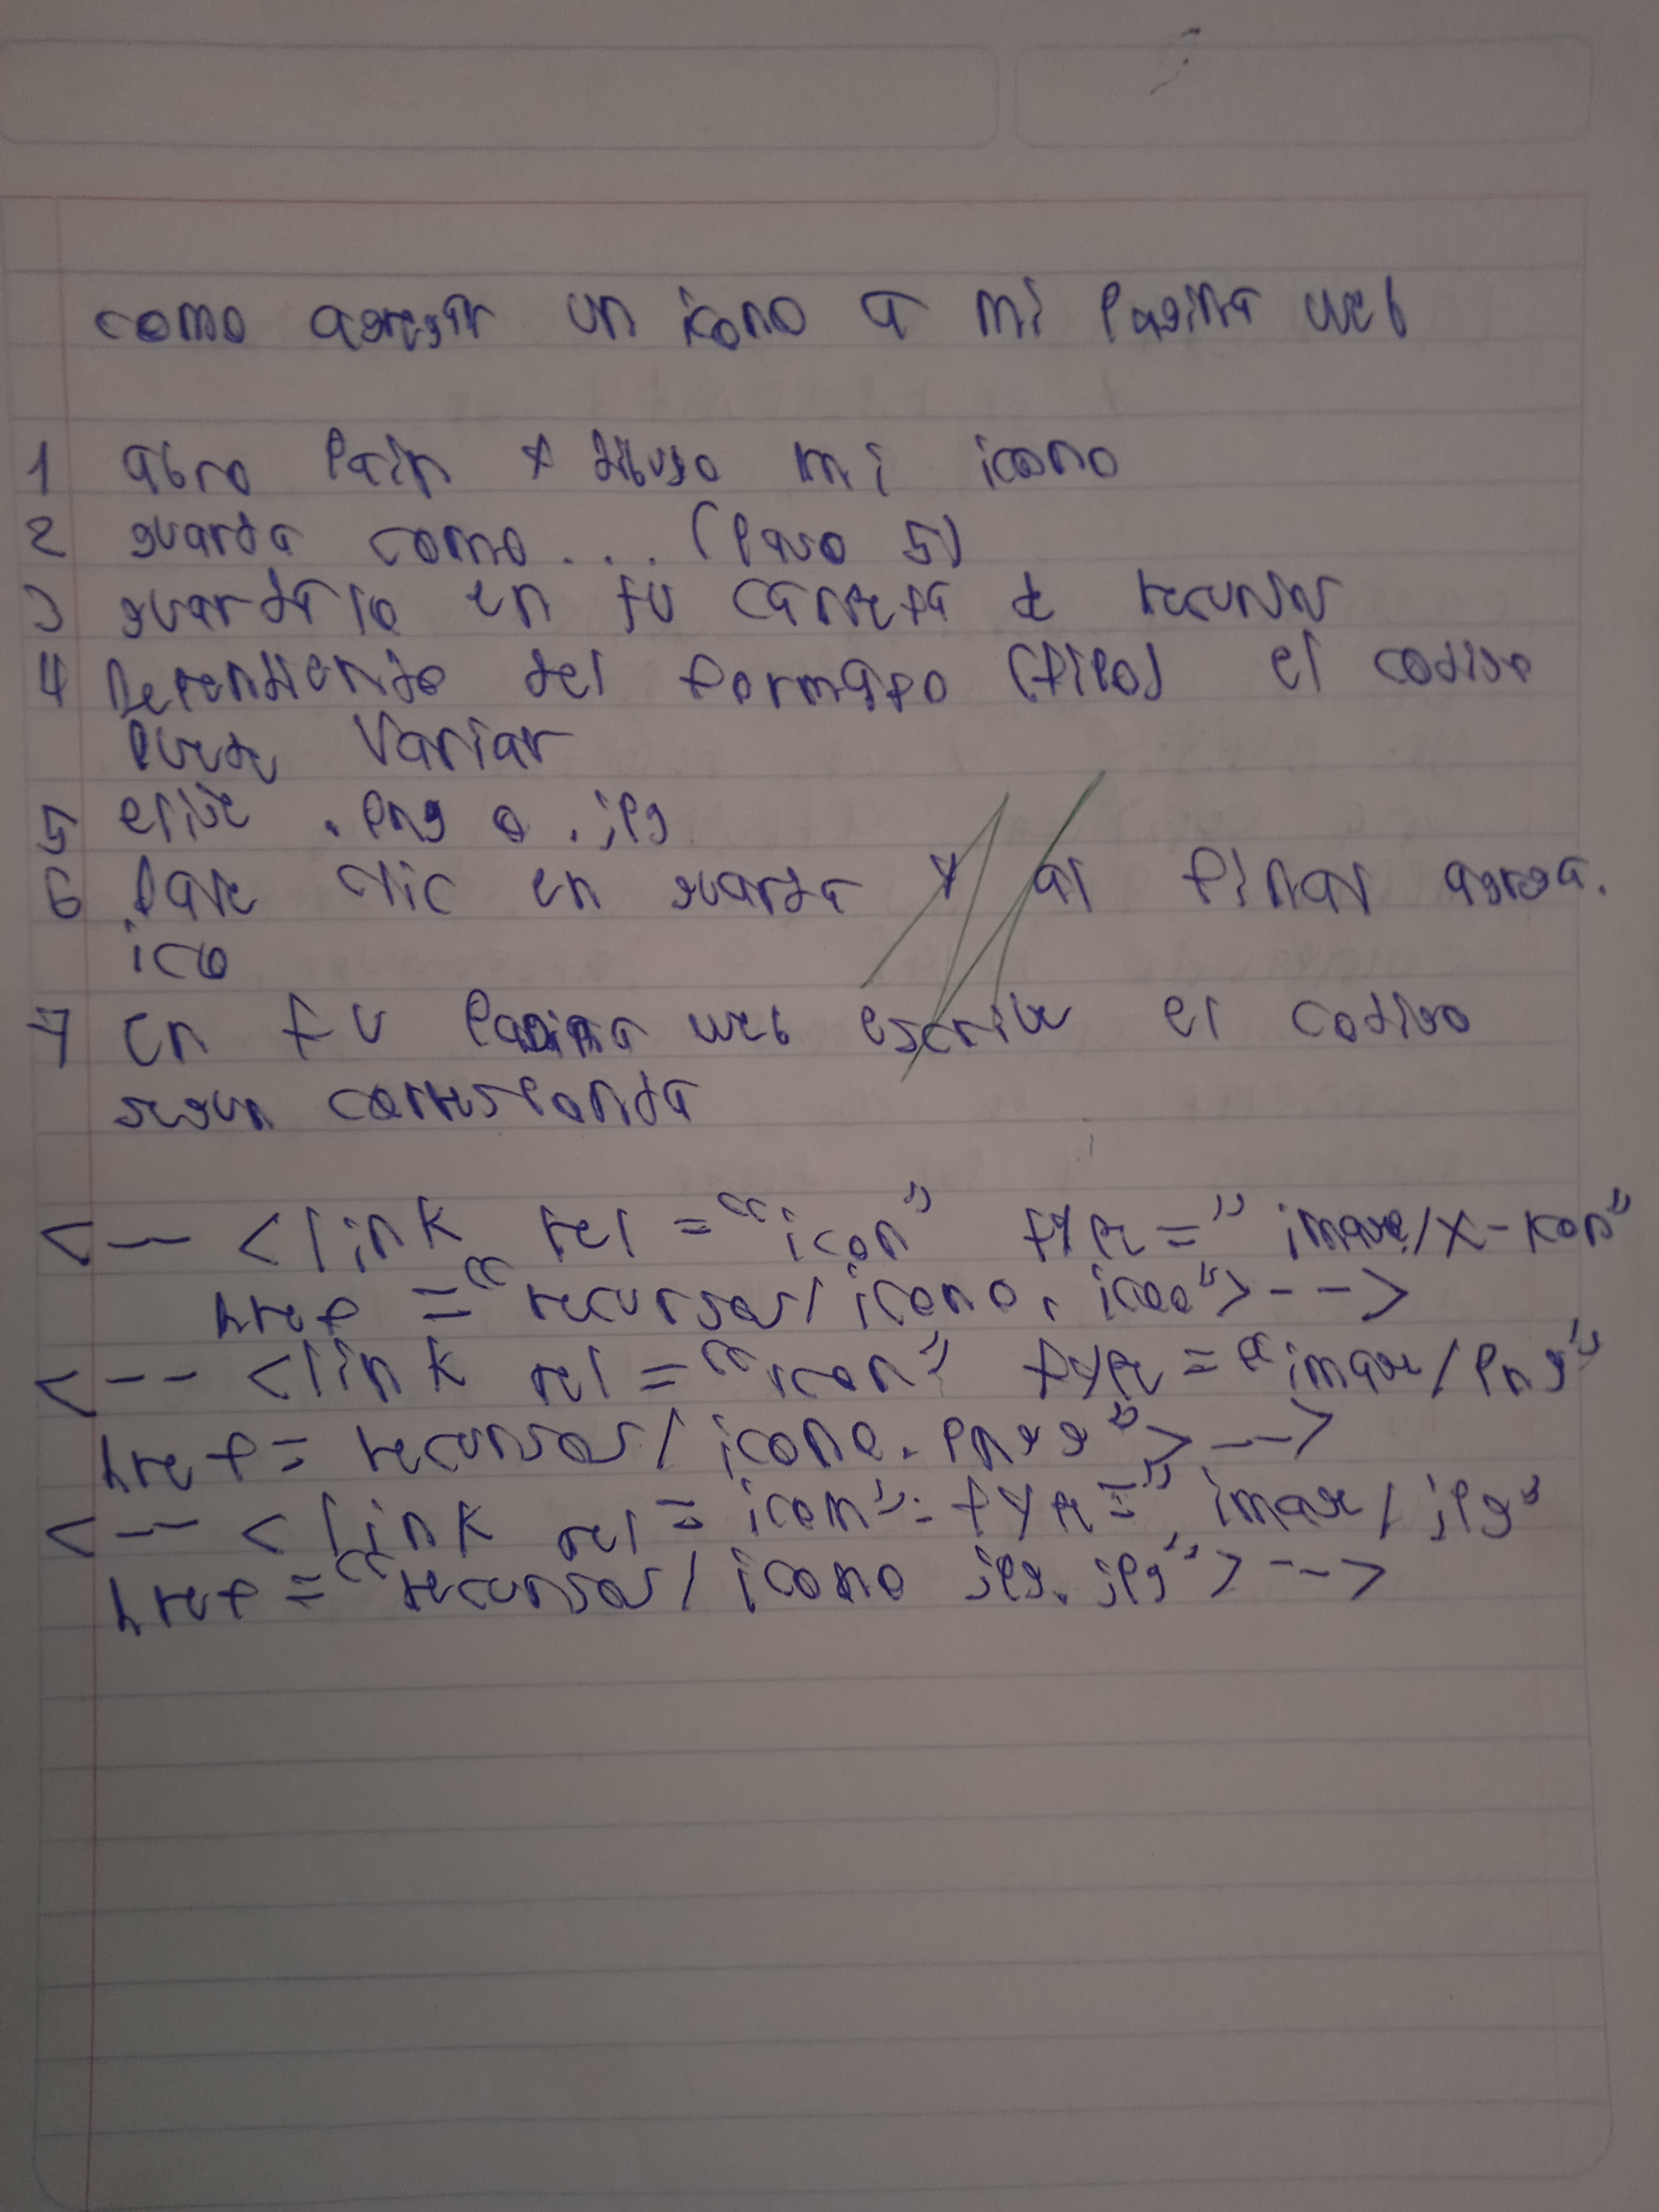 como agregar un icono a mi pagina web
1 abro Pain y dibujo mi icono
2 guarda como... (Paso 5)
3 guardalo en tu carpeta de recursos
4 Dependiendo del formato (tipo) el codigo
Puede Variar
5 elige .png o .jpg
6 Dale clic en guarda y al final agrega.
ico
7 en tu Pagina web escribe el codigo
segun corresponda
<-- <link rel = "icon" type =" image/x-icon"
href = "recursos/icono. icoo">-->
<-- <link rel = "icon" type = "image/png"
href = recursos/icono.pngg">-->
<-- <link rel = icon": type =" image/jpg"
href = "recursos/icono jpg.jpg">-->